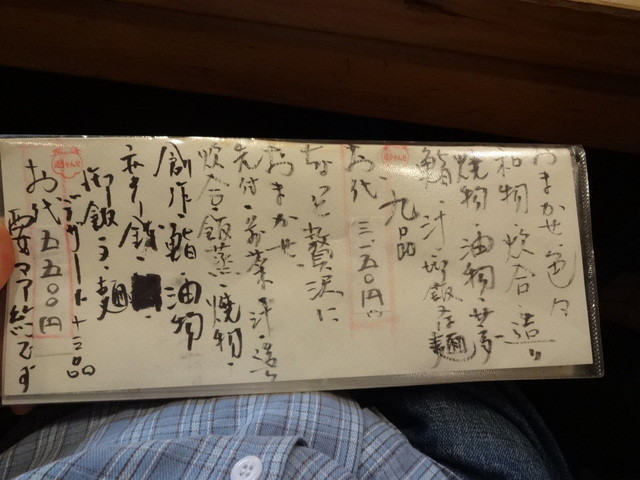 おまかせ色々
和物・炊合・造り
焼物・油物・
鮨・汁・御飯又は麺
九品
お代 三一五〇円
ちょっと贅沢に
おまかせ
先付・前菜・汁・造り
炊合・飯蒸・焼物・
創作・鮨・油物
御飯又は麺
デザート十三品
お代五五〇〇円
要予約です